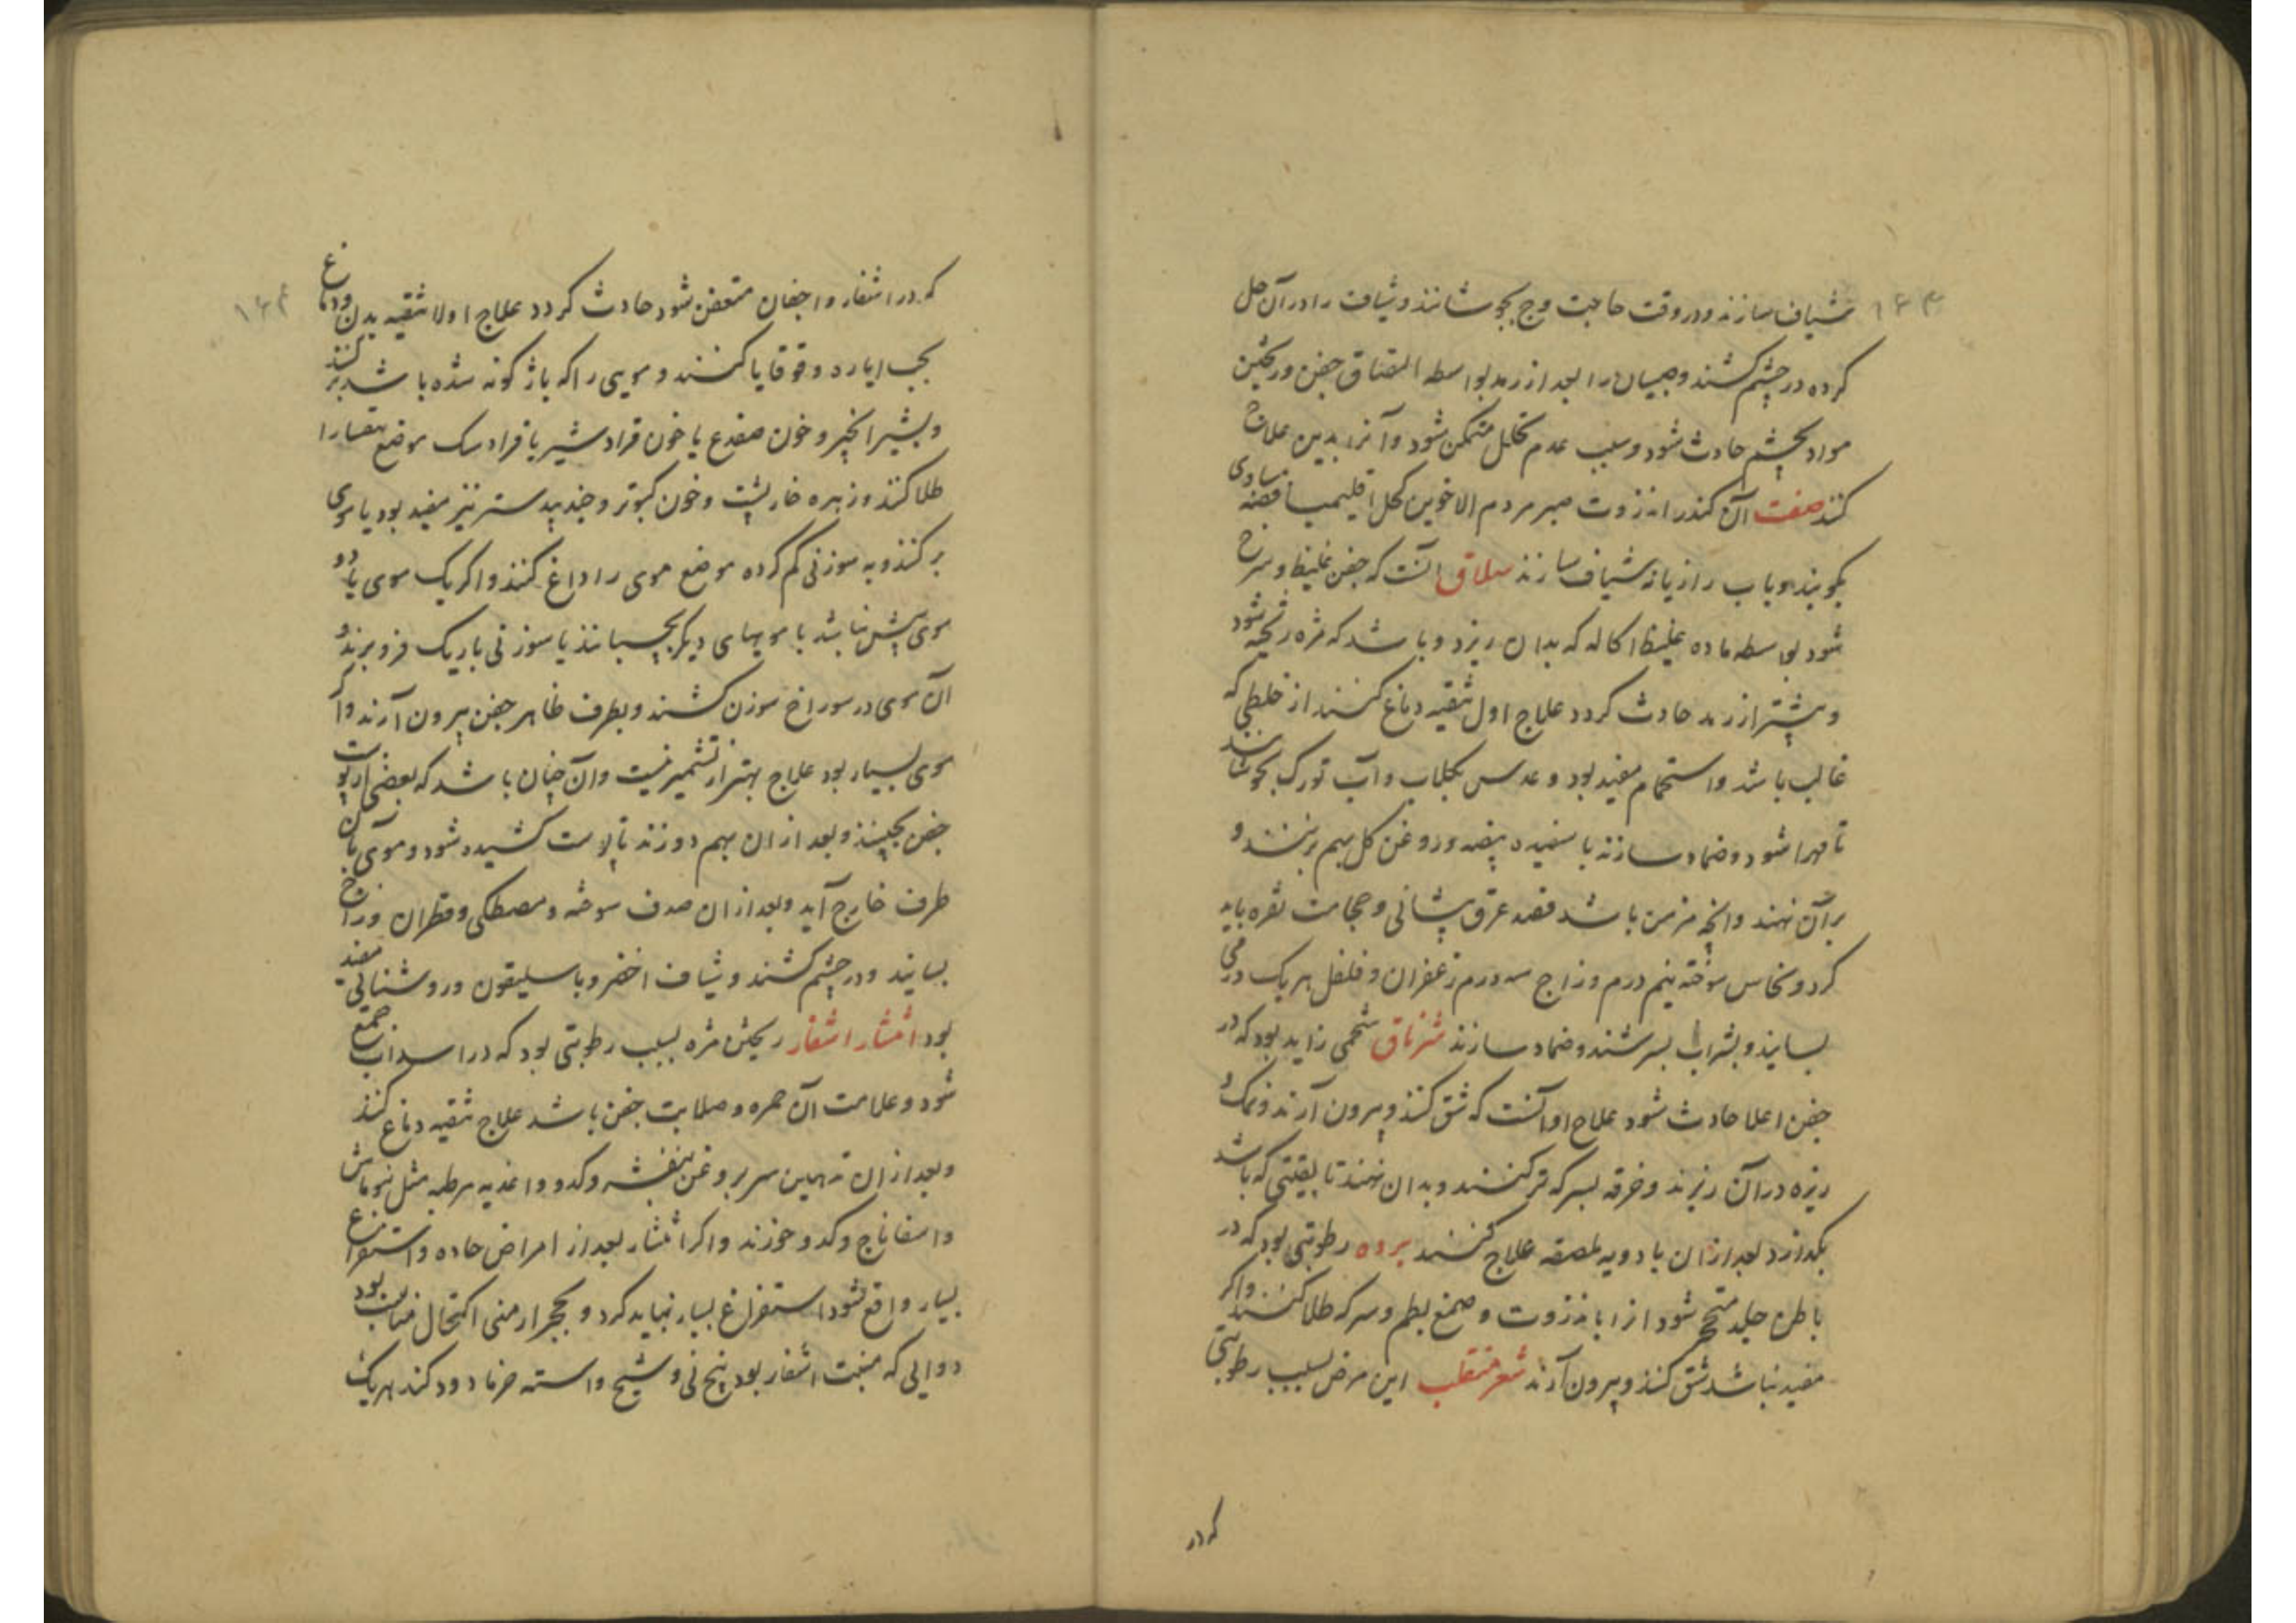 ۱۴۳
شیاف سازند و در وقت حاجت وج بجوشانند و شیاف را در آن حل
کرده در چشم کشند و صبیان را بعد از رمد بواسطه التصاق جفن و ریختن
مواد بچشم حادث شود و بسبب عدم تحلیل متمکن شود و آنرا بدین علاج
کنند صفت آن کندر انزروت صبر مر دم الاخوین کحل اقلیمیا فضه مساوی
بکوبند و باب رازیانه شیاف سازند سلاق آنست که جفن غلیظ و سرخ
شود بواسطه ماده غلیظ اکاله که بدان ریزد و باشد که مژه ریخته شود
و بیشتر از رمد حادث کردد علاج اول تنقیه دماغ کنند از خلطی که
غالب باشد و استحمام مفید بود و عدس بکلاب و آب تورک بجوشانند
تا مهرا شود و ضماد سازند با سفیده بیضه و روغن کل بهم بزنند و
بر آن نهند و آنچه مزمن باشد فصد عرق پیشانی و حجامت نقره باید
کرد و نحاس سوخته نیم درم و زاج سه درم زعفران و فلفل هر یک درمی
بسایند و بشراب بسرشند و ضماد سازند شرناق شحمی زاید بود که در
جفن اعلا حادث شود علاج او آنست که شق کنند و بیرون آرند و نمک و
زیره در آن ریزند و خرقه بسرکه تر کنند و بدان نهند تا بقیتی که باشد
بکدازد بعد از ان بادویه ملصقه علاج کنند برده رطوبتی بود که در
باطن جلد متحجر شود انرا بانزروت و صمغ بطم و سرکه طلا کنند و اکر
مفید نباشد شق کنند و بیرون آرند شعر منقلب این مرض بسبب رطوبتی
که در
۱۴۴
که در اشفار و اجفان متعفن شود حادث کردد علاج اولا تنقیه بدن و دماغ
بحب ایاره و قوقایا کنند و مویی را که باژکونه شده باشد بر کنند
و بشیر انجیر و خون ضفدع یا خون قراد شیر یا قراد سک موضع را
طلا کنند و زهره خارپشت و خون کبوتر و جندبیدستر نیز مفید بود یا موی
بر کنند و به سوزنی کرم کرده موضع موی را داغ کنند و اکر یک موی یا دو
موی بیش نباشد با مویهای دیکر بچسبانند یا سوزنی باریک فرو برند و
آن موی در سوراخ سوزن کشند و بطرف ظاهر جفن بیرون آرند و اکر
موی بسیار بود علاج بهتر از تشمیر نیست و آن چنان باشد که بعضی از پوست
جفن بچینند و بعد از ان بهم دوزند تا راست کشیده شود و موی با
طرف خارج آید و بعد از ان صدف سوخته و مصطکی و قطران و زاج
بسایند و در چشم کشند و شیاف اخضر و باسلیقون و روشنائی مفید
بود انتثار اشفار ریختن مژه بسبب رطوبتی بود که در اهداب جمع
شود و علامت آن حمره و صلابت جفن باشد علاج تنقیه دماغ کنند
و بعد از ان تدهین سر بروغن بنفشه و کدو و اغذیه مرطبه مثل ماش
و اسفاناج و کدو خورند و اکر انتثار بعد از امراض حاده و استفراغ
بسیار واقع شود استفراغ بسیار نباید کرد و بحجر ارمنی اکتحال مناسب بود
دوایی که منبت اشفار بود بیخ نی و شیح و استه خرما دود کند هر یک